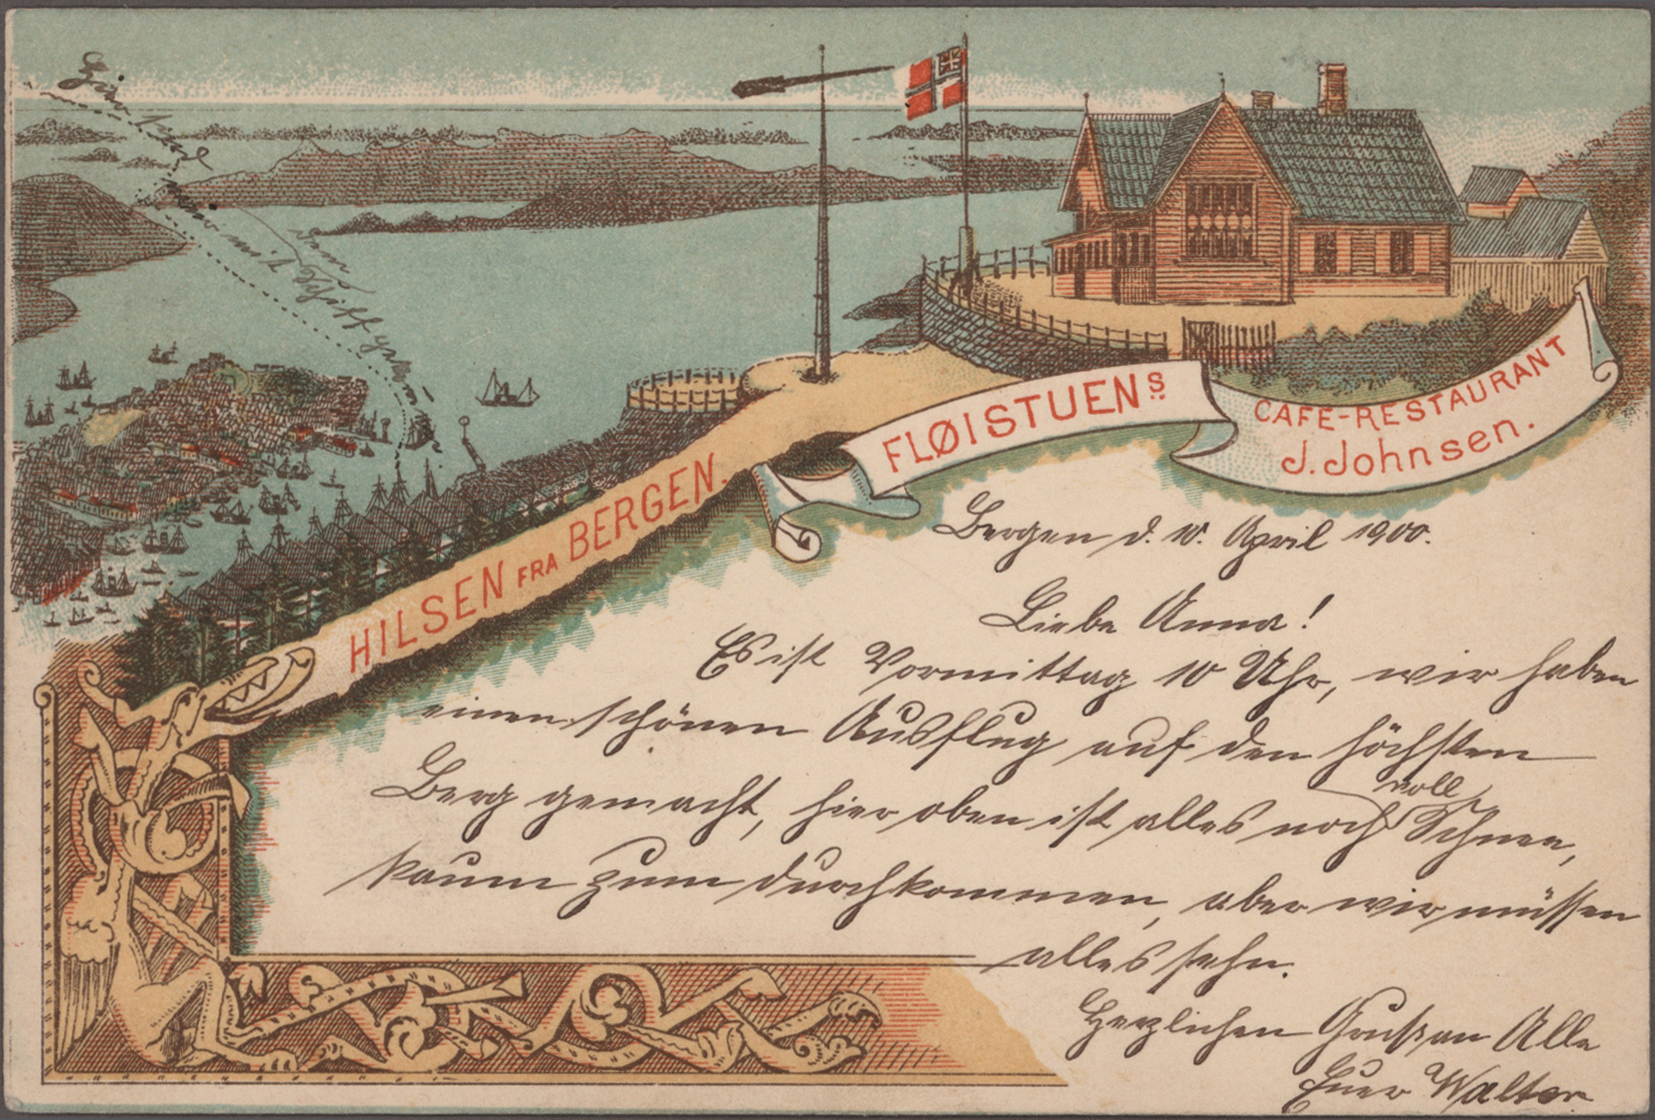 Hier sind
wir mit
dem
Schiff gekommen
HILSEN FRA BERGEN.
FLØISTUENS
CAFE-RESTAURANT
J. Johnsen.
Bergen d. 10. April 1900.
Liebe Anna!
Es ist Vormittag 10 Uhr, wir haben
einen schönen Ausflug auf den höchsten
Berg gemacht, hier oben ist alles noch voll Schnee,
kaum zum durchkommen, aber wir müssen
alles sehn.
Herzlichen Gruß an Alle
Euer Walter